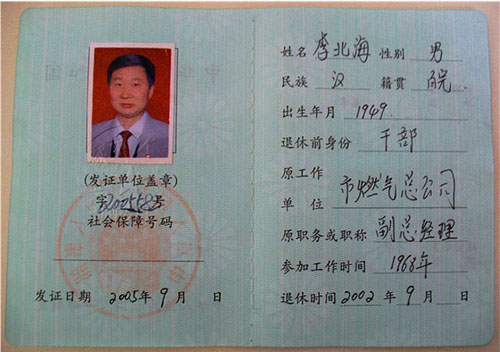 (发证单位盖章)
字3202558号
社会保障号码
发证日期 2005年 9月 日
姓名 李北海 性别 男
民族 汉 籍贯 皖
出生年月 1949.
退休前身份 干部
原工作
单位 市燃气总公司
原职务或职称 副总经理
参加工作时间 1968年
退休时间 2002年 9月 日